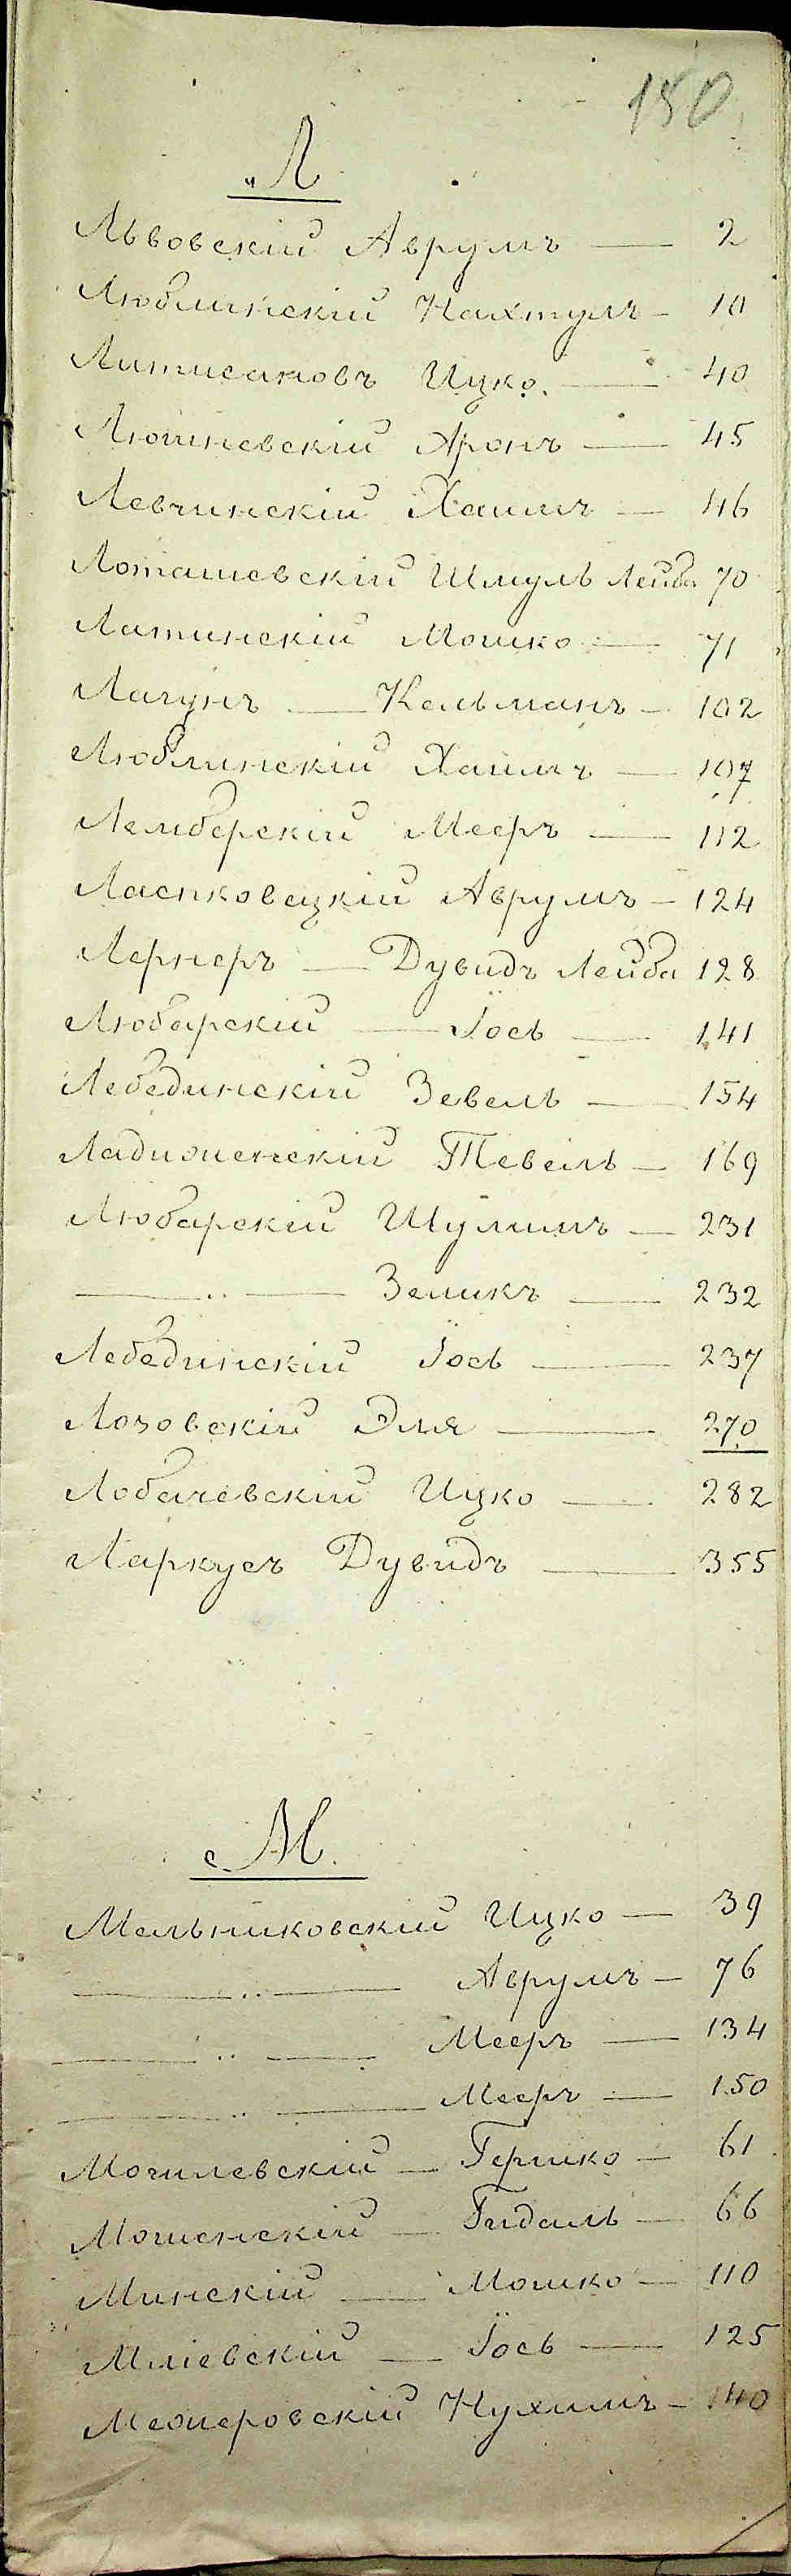 180
Л
Львовскій Аврумъ — 2
Люблинскій Нахтумъ — 10
Литисановъ Ицко. — 40
Люшневскій Аронъ — 45
Левчинскій Хаимъ — 46
Поташевскій Шмуль Лейба 70
Латинскій Мошко — 71
Лагунъ — Кельманъ — 102
Люблинскій Хаимъ — 107
Лемберскій Мееръ — 112
Ласковецкій Аврумъ — 124
Лернеръ — Дувидъ Лейба 128
Любарскій — Іось — 141
Лебединскій Зевель — 154
Ладиженскій Тевель — 169
Любарскій Шулимъ — 231
— „ — Зеликъ — 232
Лебединскій Іось — 237
Лозовскій Эля — 270
Лобачевскій Ицко — 282
Ларкусъ Дувидъ — 355
М.
Мельниковскій Ицко — 39
— „ — Аврумъ — 76
— „ — Мееръ — 134
— „ — Мееръ — 150
Могилевскій — Гершко — 61
Мошенскій — Гидаль — 66
Минскій — Мошко — 110
Мліевскій — Іось — 125
Межеровскій Нухимъ — 140